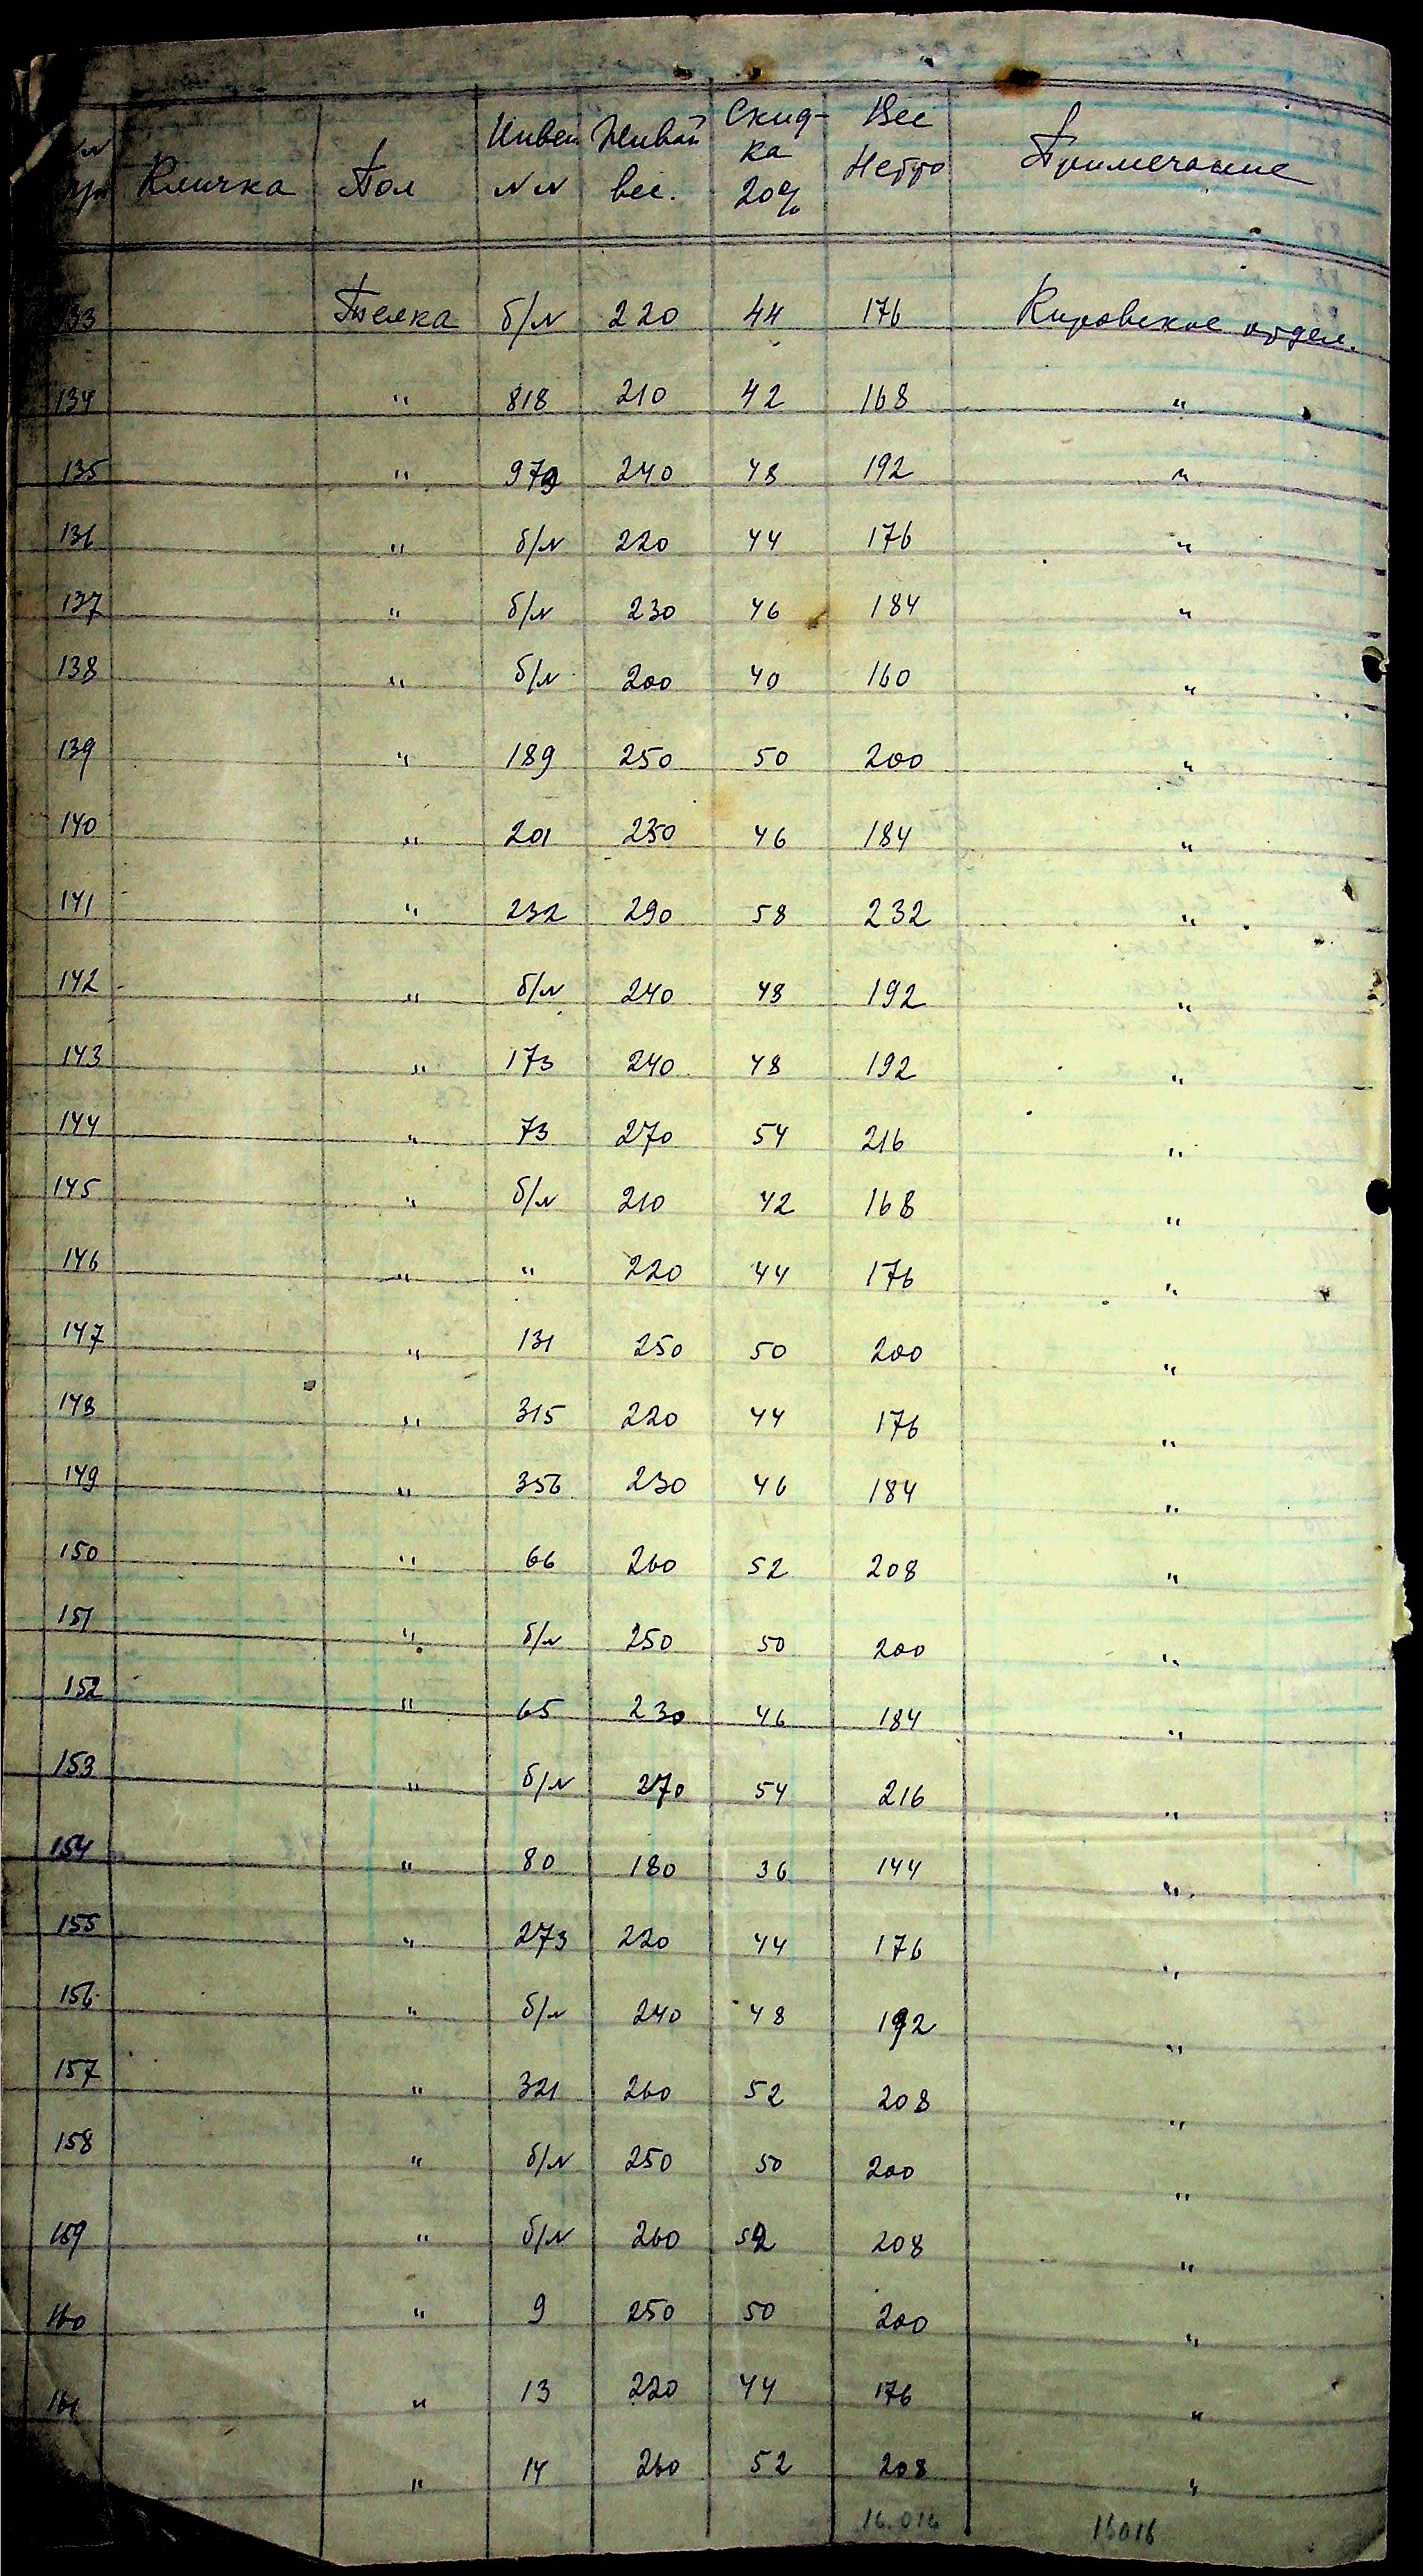 Кличка Пол Инвен №№ Живой вес. Скидка 20% Вес Нетто Примечание
133 Телка б/н 220 44 176 Кировское отдел.
134 " 818 210 42 168 "
135 " 979 240 48 192 "
136 " б/н 220 44 176 "
137 " б/н 230 46 184 "
138 " б/н 200 40 160 "
139 " 189 250 50 200 "
140 " 201 230 46 184 "
141 " 232 290 58 232 "
142 " б/н 240 48 192 "
143 " 173 240 48 192 "
144 " 73 270 54 216 "
145 " б/н 210 42 168 "
146 " " 220 44 176 "
147 " 131 250 50 200 "
148 " 315 220 44 176 "
149 " 356 230 46 184 "
150 " 66 260 52 208 "
151 " б/н 250 50 200 "
152 " 65 230 46 184 "
153 " б/н 270 54 216 "
154 " 80 180 36 144 "
155 " 273 220 44 176 "
156 " б/н 240 48 192 "
157 " 321 260 52 208 "
158 " б/н 250 50 200 "
159 " б/н 260 52 208 "
160 " 9 250 50 200 "
161 " 13 220 44 176 "
" 14 260 52 208 "
16.016 16016